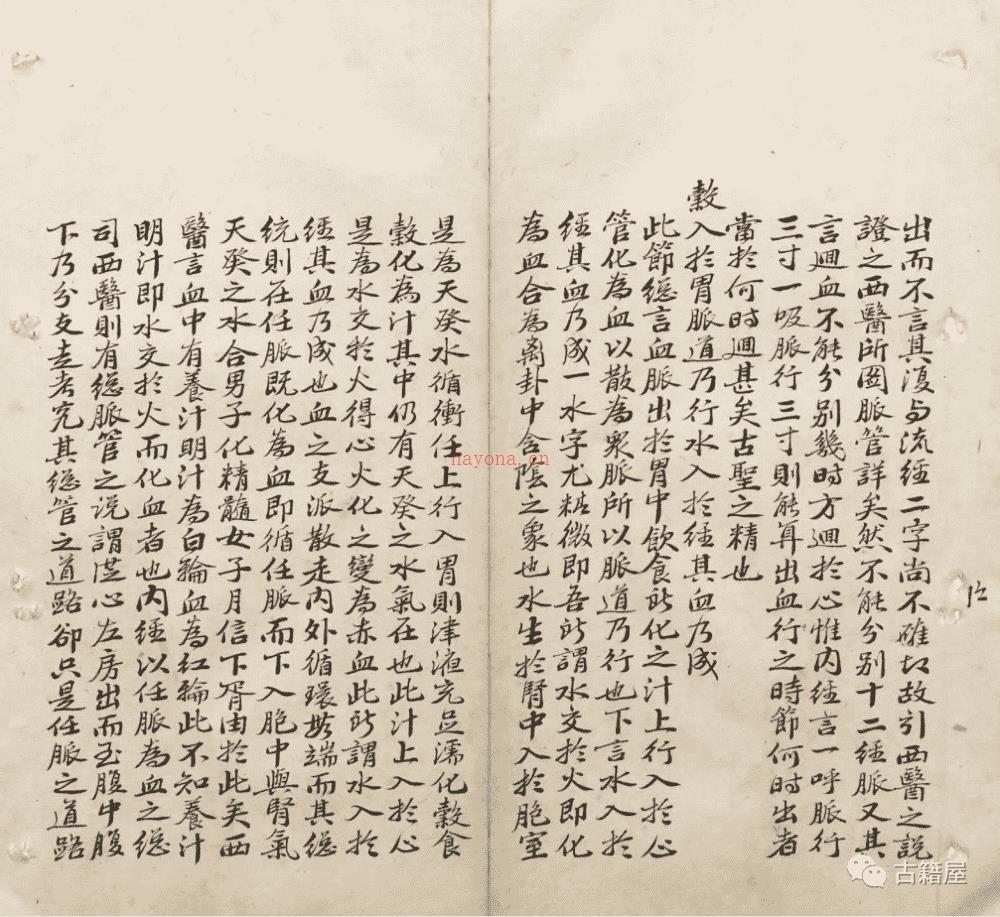 出而不言其復与流經二字尚不確切故引西醫之說
證之西醫所圖脈管詳矣然不能分別十二經脈又其
言迴血不能分別幾時方迴於心惟內經言一呼脈行
三寸一吸脈行三寸則能算出血行之時節何時出者
當於何時迴甚矣古聖之精也
穀入於胃脈道乃行水入於經其血乃成
此節總言血脈出於胃中飲食所化之汁上行入於心
管化為血以散為眾脈所以脈道乃行也下言水入於
經其血乃成一水字尤精微即吾所謂水交於火即化
為血合為离卦中含陰之象也水生於腎中入於胞室
是為天癸水循衝任上行入胃則津液充足濡化穀食
穀化為汁其中仍有天癸之水氣在也此汁上入於心
是為水交於火得心火化之變為赤血此所謂水入於
經其血乃成也血之支派散走內外循環毋端而其總
統則在任脈既化為血即循任脈而下入胞中與腎氣
天癸之水合男子化精髓女子月信下胥由於此矣西
醫言血中有養汁明汁為白輪血為紅輪此不知養汁
明汁即水交於火而化血者也內經以任脈為血之總
司西醫則有總脈管之說謂從心左房出而至腹中腹
下乃分支走考究其總管之道路卻只是任脈之道路
nayona.cn
古籍屋